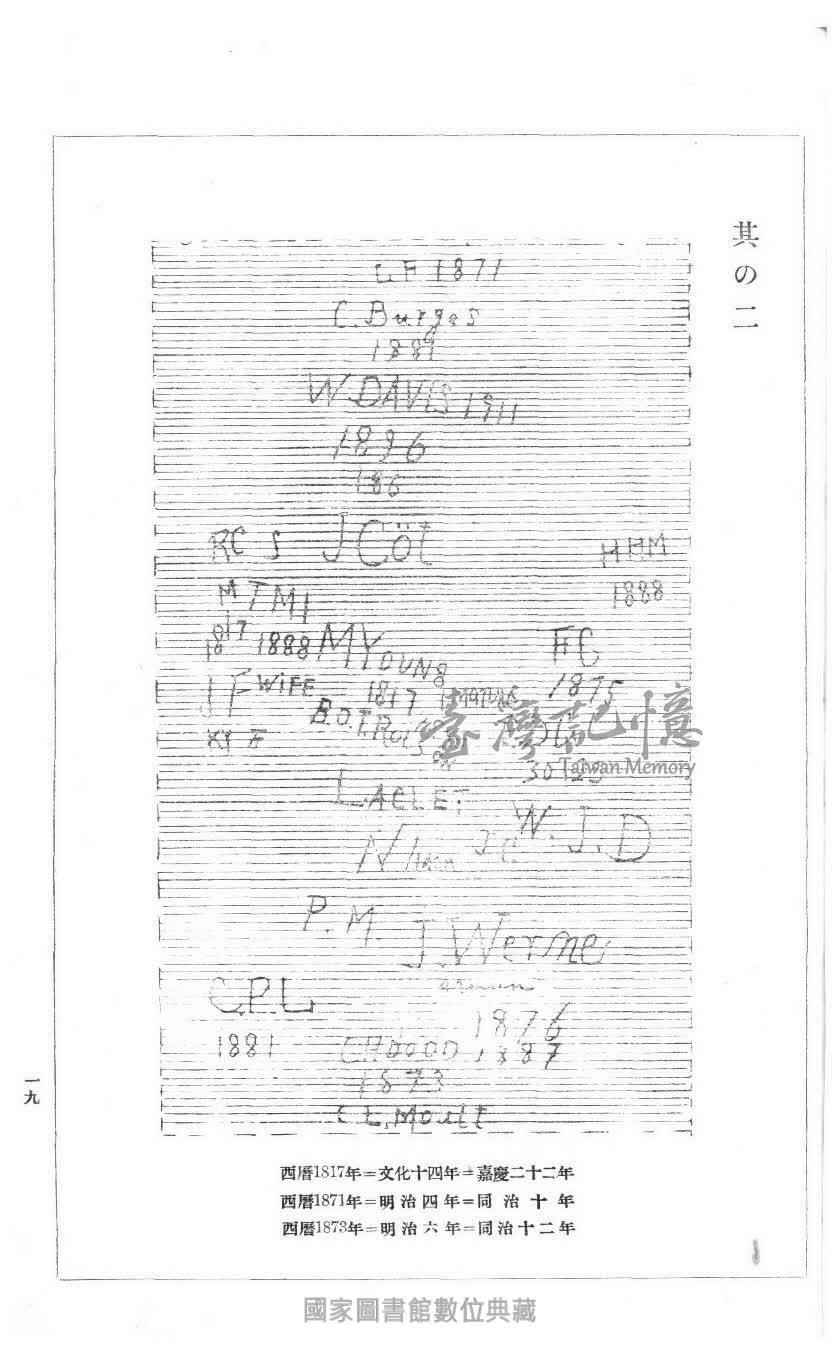 其の二
L F 1871
C. Burges
1881
W. DAVIS 1911
1896
186
RC S J Cöt
H HM
1888
M T M I
1817 1888 M YOUNG
F C
1875
J F WIFE
1817
B.O.T.
LACLET
W. J. D
P. M. J. Werne
C.P.L
1881
1876
1887
1873
C L. Moult
西曆1817年=文化十四年=嘉慶二十二年
西曆1871年=明治四年=同治十年
西曆1873年=明治六年=同治十二年
一九
臺灣記憶
Taiwan Memory
國家圖書館數位典藏